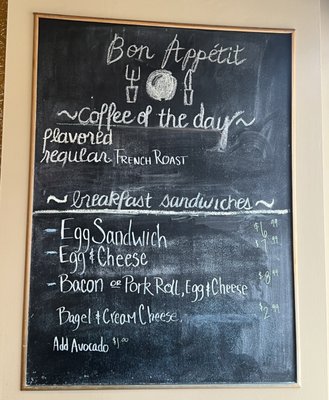 Bon Appétit
~coffee of the day~
flavored
regular French Roast
~breakfast sandwiches~
- Egg Sandwich $6.99
- Egg & Cheese $7.99
- Bacon or Pork Roll, Egg & Cheese $8.99
Bagel & Cream Cheese $2.99
Add Avocado $1.00